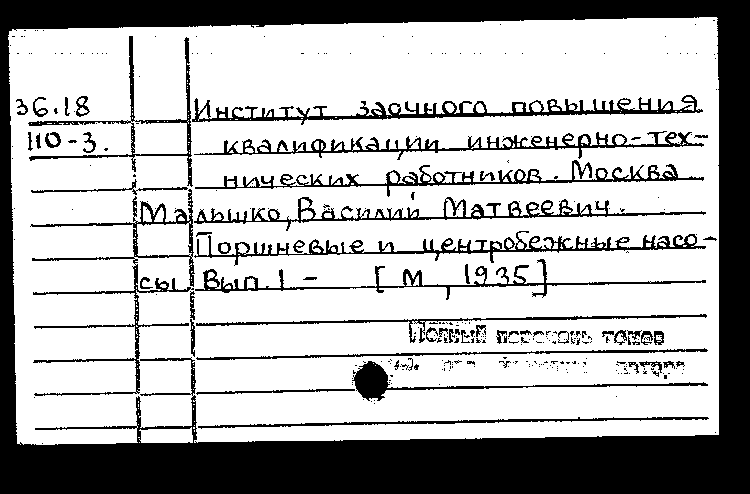 36.18 Институт заочного повышения
110-3. квалификации инженерно-тех-
нических работников. Москва
Малышко, Василий Матвеевич.
Поршневые и центробежные насо-
сы Вып. 1 - [М, 1935]
Полный перечень томов
автора